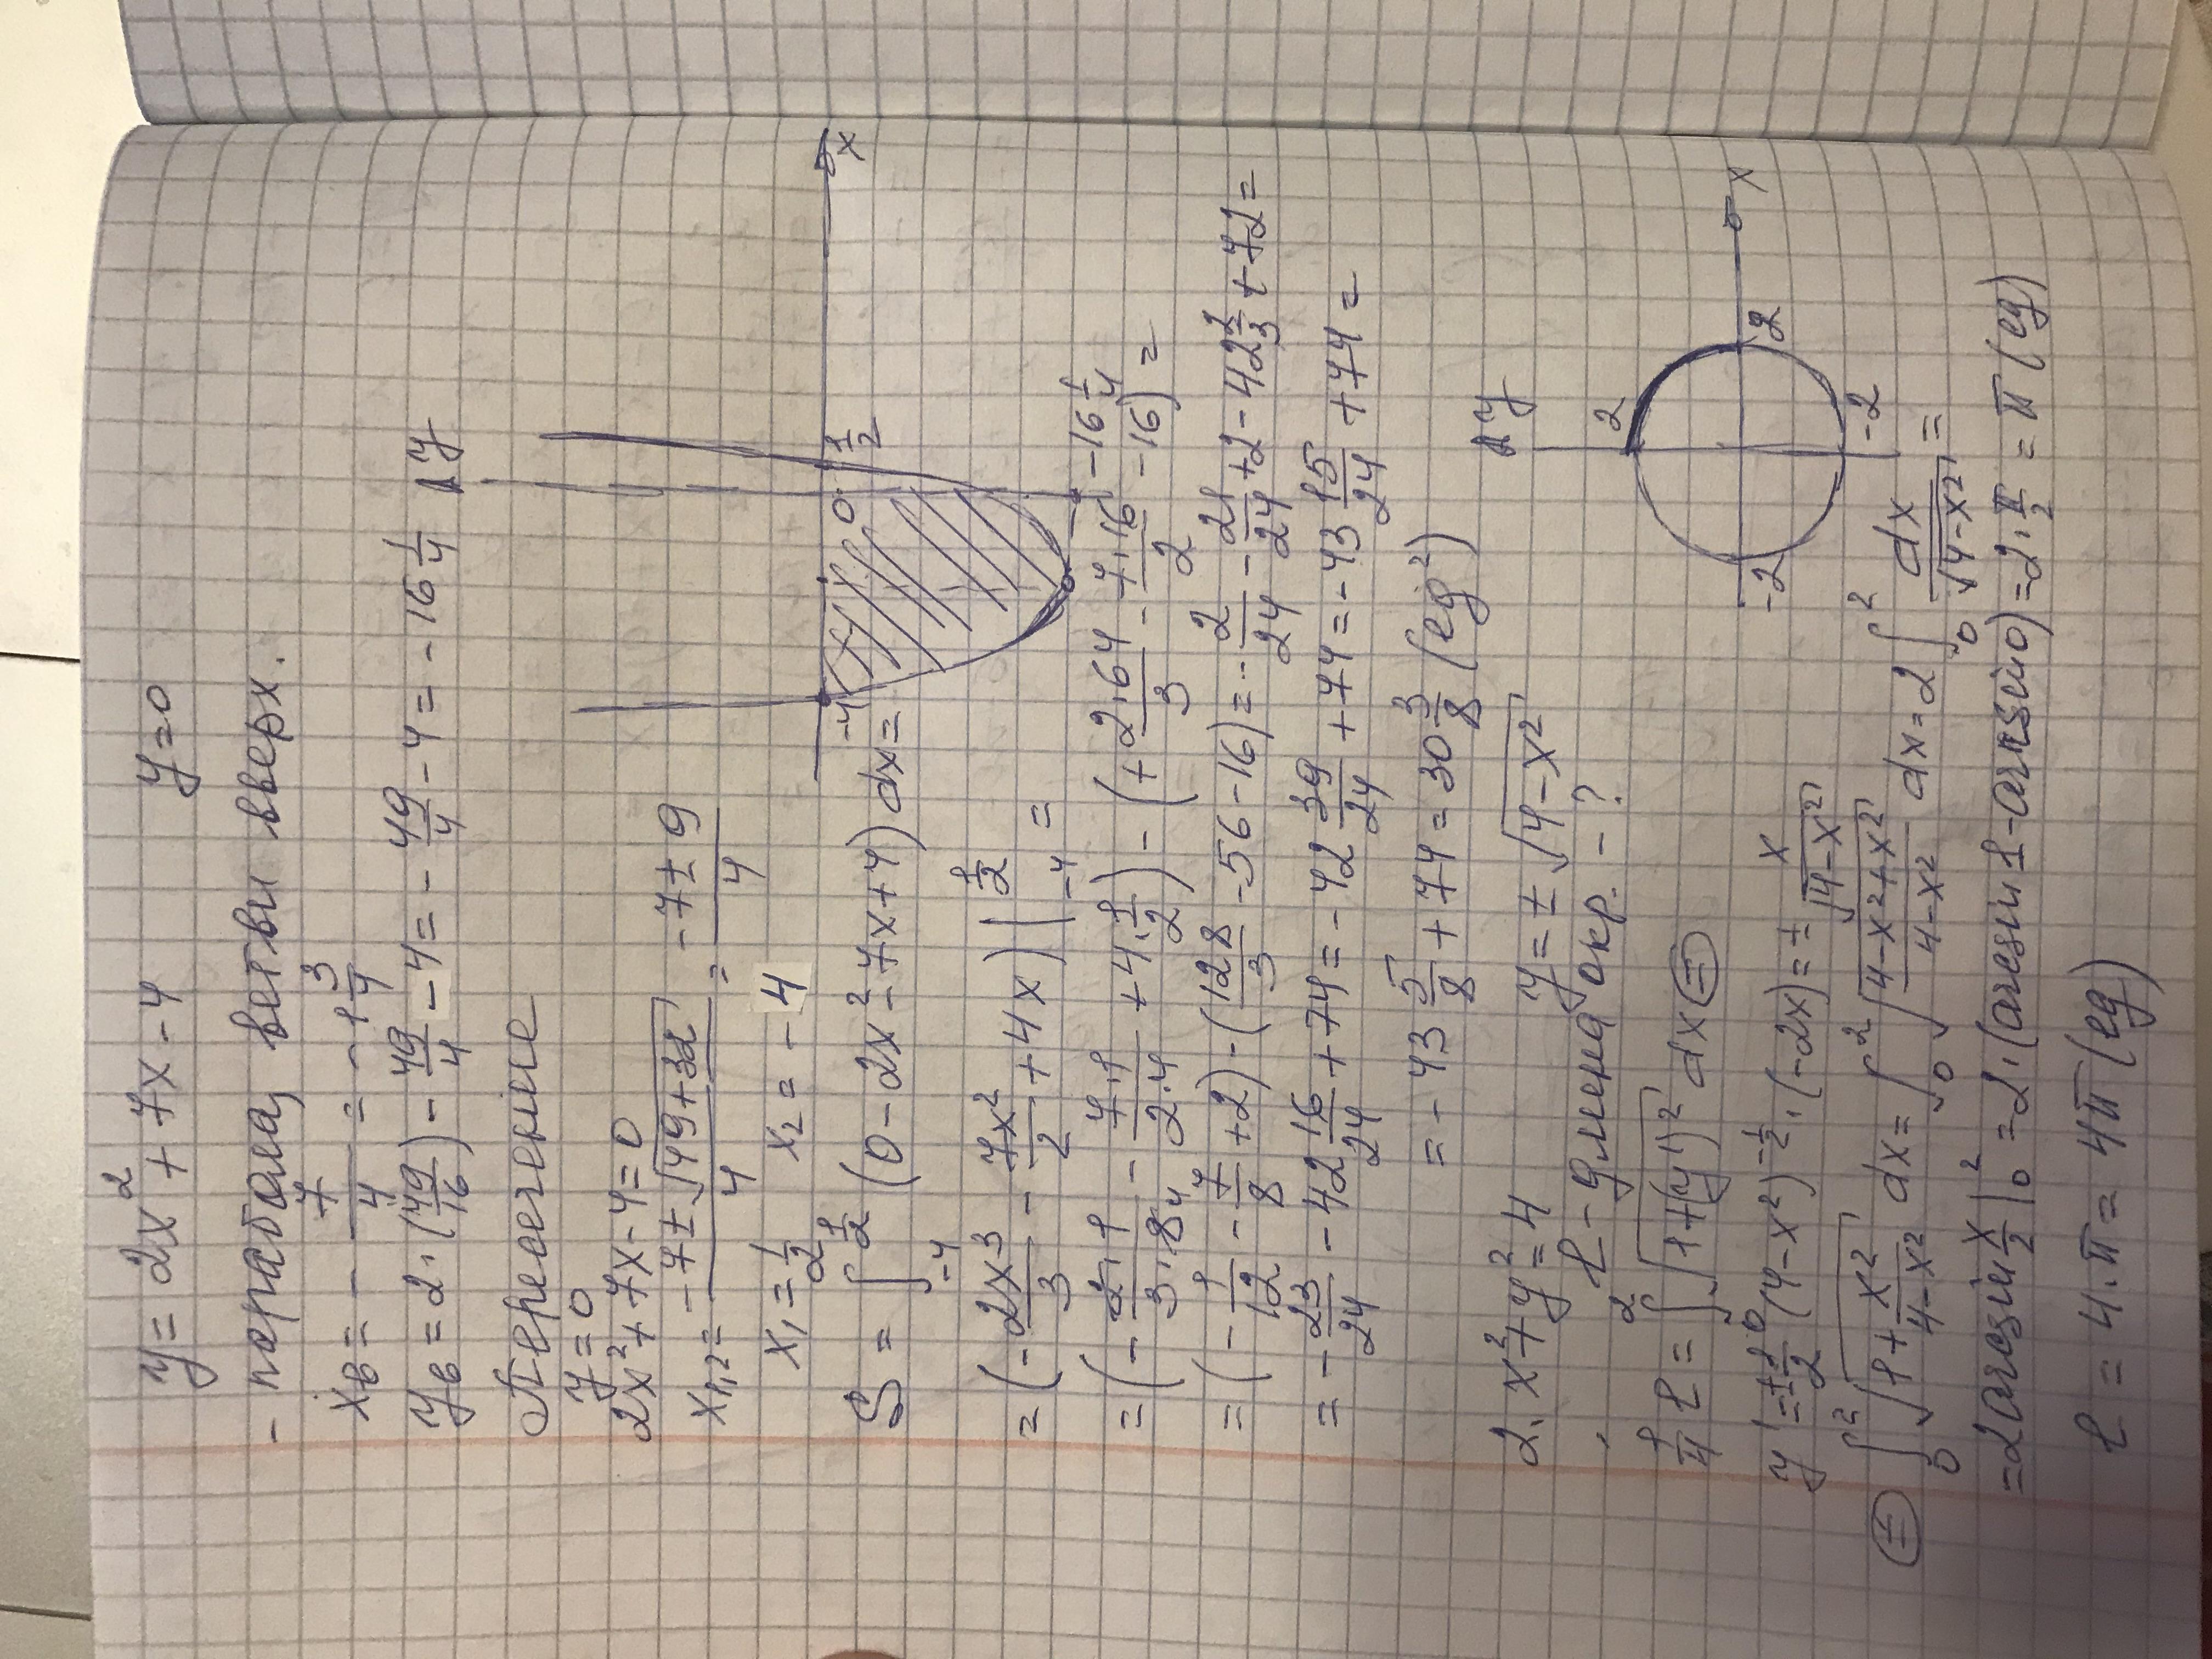 y = 2x² + 7x - 4     y = 0
- парабола, ветви вверх.
xв = - 7/4 = - 1 3/4
yв = 2 · (49/16) - 49/4 - 4 = - 49/4 - 4 = - 16 1/4
Пересечение
y = 0
2x² + 7x - 4 = 0
x1,2 = (-7 ± √(49+32))/4 = (-7 ± 9)/4
x1 = 1/2     x2 = - 4
y
-4   0   1/2   x
-16 1/4
S = ∫_{-4}^{1/2} (0 - 2x² - 7x + 4) dx =
= (- 2x³/3 - 7x²/2 + 4x) |_{-4}^{1/2} =
= (- 2·1/3·8 - 7·1/2·4 + 4·1/2) - (+ 2·64/3 - 7·16/2 - 16) =
= (- 1/12 - 7/8 + 2) - (128/3 - 56 - 16) = - 2/24 - 21/24 + 2 - 42 2/3 + 72 =
= - 23/24 - 42 16/24 + 74 = - 42 39/24 + 74 = - 43 15/24 + 74 =
= - 43 5/8 + 74 = 30 3/8 (ед²)
2. x² + y² = 4     y = ± √(4 - x²)
l - длина окр. - ?
y
2
-2   2   x
-2
1/4 l = ∫_0^2 √(1 + (y')²) dx ⊜
y' = ± 1/2 (4 - x²)^{-1/2} · (-2x) = ± x/√(4 - x²)
⊜ ∫_0^2 √(1 + x²/(4 - x²)) dx = ∫_0^2 √((4 - x² + x²)/(4 - x²)) dx = 2 ∫_0^2 dx/√(4 - x²) =
= 2 arcsin x/2 |_0^2 = 2 · (arcsin 1 - arcsin 0) = 2 · π/2 = π (ед)
l = 4 · π = 4π (ед)